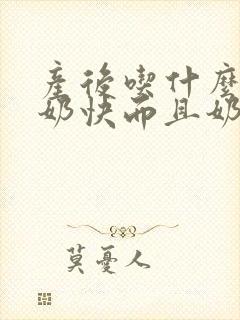 產後喫什麼
奶快而且奶
莫憂人